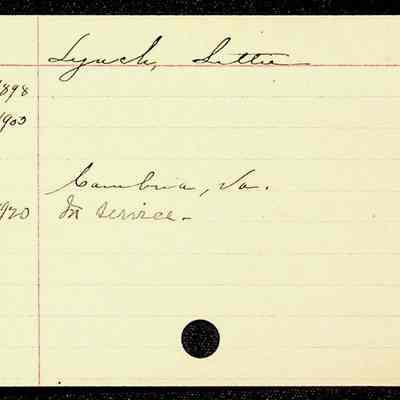 Lynch, Lettie
1898
1900
Cambria, Va.
1920 In service.